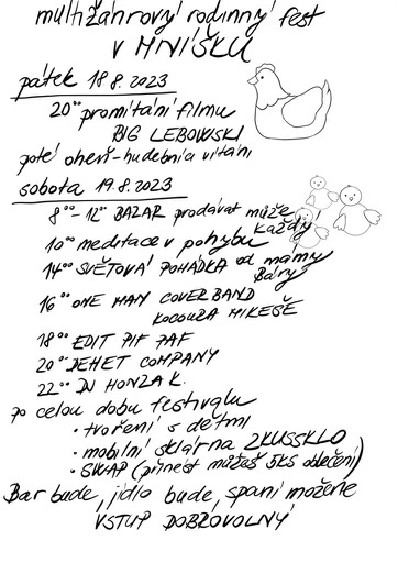 multižánrový rodinný fest
v MNÍŠKU
pátek 18.8.2023
20°° promítání filmu
BIG LEBOWSKI
poté oheň-hudební a vítání
sobota 19.8.2023
8°°-12°° BAZAR prodávat může
každý!
10°° meditace v pohybu
14°° SVĚTOVÁ POHÁDKA od mámy
Báry
16°° ONE MAN COVERBAND
KOCOURA MIKEŠE
18°° EDIT PIF PAF
20°° DEHET COMPANY
22°° DJ HONZA K.
po celou dobu festivalu
• tvoření s dětmi
• mobilní sklárna ZKUSSKLO
• SWAP (přinést můžeš 5KS oblečení)
Bar bude, jídlo bude, spaní možené
VSTUP DOBROVOLNÝ